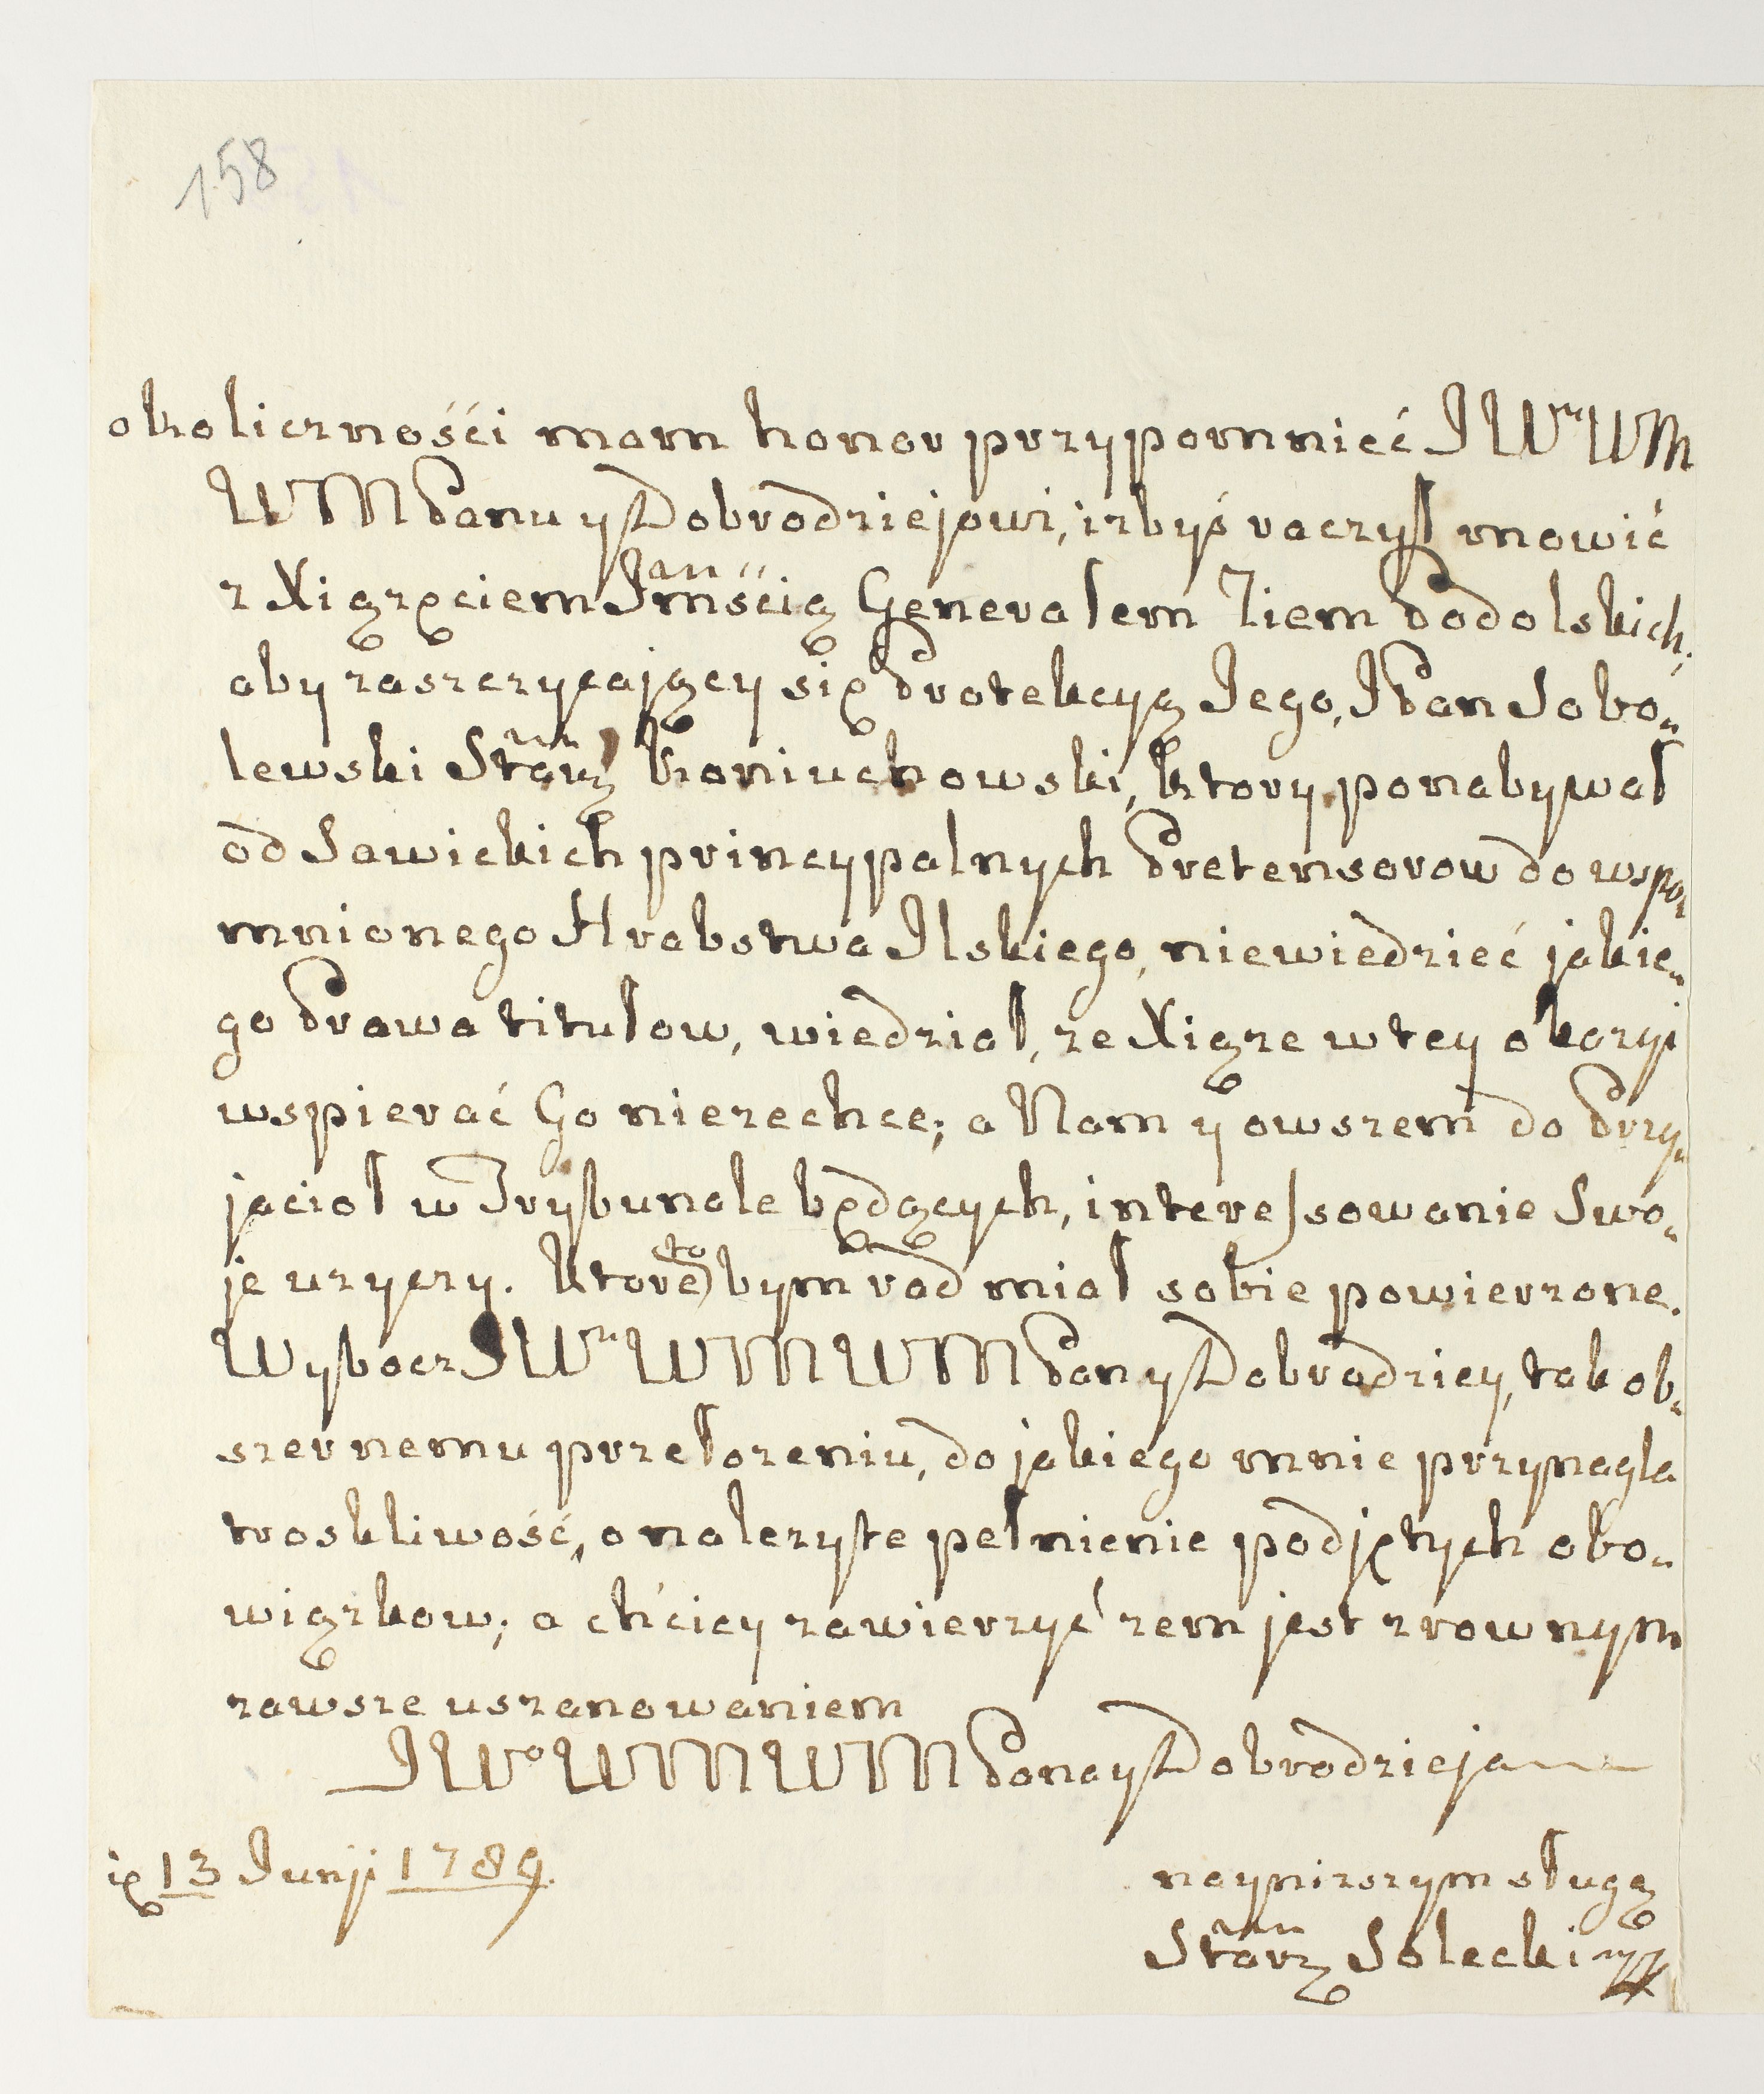 158
okolicznośći mam honor przypomnieć J W<sup>mu</sup> WM
WM Panu y Dobrodziejowi, izbyś raczył mowić
z Xiązęciem Jmścią Generałem Ziem Podolskich,
aby zaszczycający się Protekcyą Jego, JPan Sobo„
lewski Starż Koniuchowski, ktory ponabywał
od Sawickich pryncypalnych Pretensorow do wspo„
mnionego Hrabstwa Ilskiego, niewiedzieć jakie„
go Prawa titułow, wiedział, ze Xiąze w tey okazyi
wspierać Go niezechce; a Nam y owszem do Przy„
jacioł w Trybunale będących, interessowanie Swo„
je uzyczy. Ktore to bym rad miał sobie powierzone.
Wybacz J W<sup>ny</sup> WM WM Pan y Dobrodziey, tak ob„
szernemu przełozeniu, do jakiego mnie przynagla
troskliwość, o nalezyte pełnienie podjętych obo„
wiązkow; a chćiey zawierzyć zem jest z rownym
zawsze uszanowaniem
J W<sup>o</sup> WM WM Pana y Dobrodzieja
13 Junji 1789.
naynizszym sługą
Starż Solecki